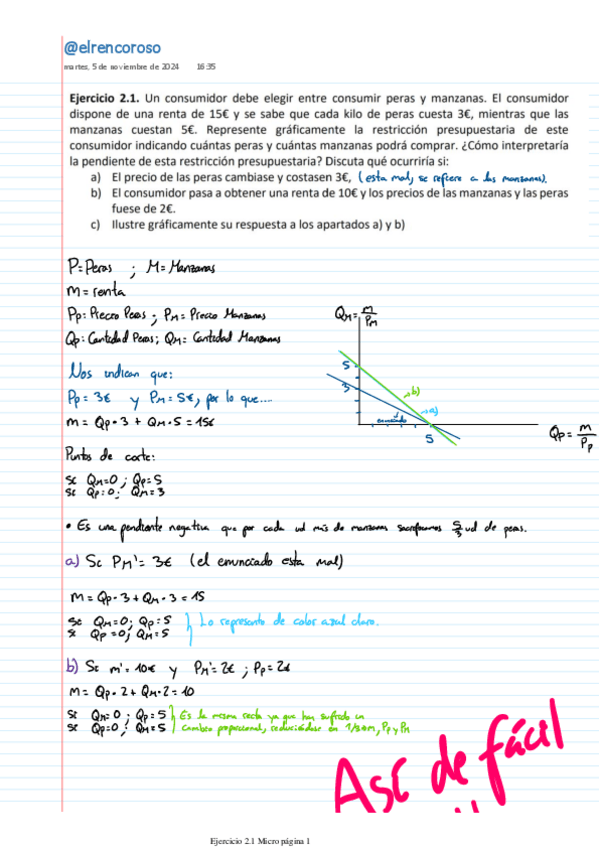 @elrencoroso
martes, 5 de noviembre de 2024 16:35
Ejercicio 2.1. Un consumidor debe elegir entre consumir peras y manzanas. El consumidor
dispone de una renta de 15€ y se sabe que cada kilo de peras cuesta 3€, mientras que las
manzanas cuestan 5€. Represente gráficamente la restricción presupuestaria de este
consumidor indicando cuántas peras y cuántas manzanas podrá comprar. ¿Cómo interpretaría
la pendiente de esta restricción presupuestaria? Discuta qué ocurriría si:
a) El precio de las peras cambiase y costasen 3€, (esta mal, se refiere a las manzanas).
b) El consumidor pasa a obtener una renta de 10€ y los precios de las manzanas y las peras
fuese de 2€.
c) Ilustre gráficamente su respuesta a los apartados a) y b)
P=Peras ; M=Manzanas
m=renta
Pp: Precio Peras ; PM= Precio Manzanas
Qp: Cantidad Peras; QM= Cantidad Manzanas
QM= m/PM
Nos indican que:
5
Pp= 3€ y PM= 5€, por lo que....
3
→b)
→a)
enunciado
m= Qp·3 + QM·5 = 15€
5
Qp= m/Pp
Puntos de corte:
Si QM=0 ; Qp=5
Si Qp=0; QM=3
• Es una pendiente negativa que por cada ud más de manzanas sacrificamos 5/3 ud de peras.
a) Si PM'= 3€ (el enunciado esta mal)
m= Qp·3 + QM·3 = 15
Si QM=0; Qp=5
Si Qp=0; QM=5
Lo represento de color azul claro.
b) Si m'= 10€ y PM'= 2€ ; Pp= 2€
m= Qp·2 + QM·2 = 10
Si QM=0 ; Qp=5
Si Qp=0 ; QM=5
Es la misma recta ya que han sufrido un
cambio proporcional, reduciéndose en 1/3 a m, Pp y PM
Asi de fácil
Ejercicio 2.1 Micro página 1